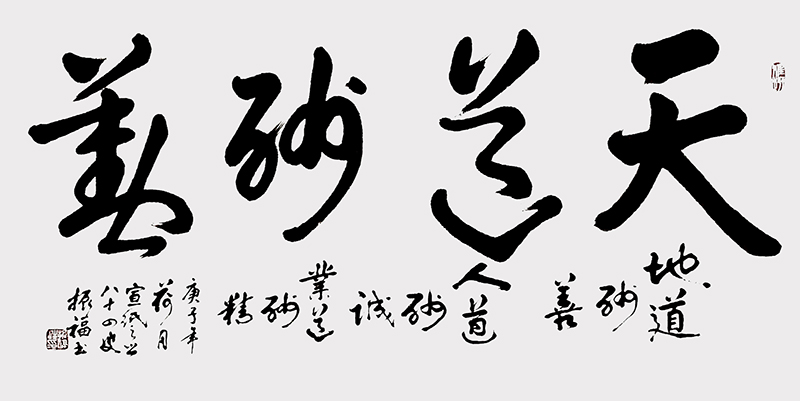 天道酬勤
地道酬善
人道酬誠
業道酬精
庚子年
荷月
宣纸之上
八十四叟
振福书